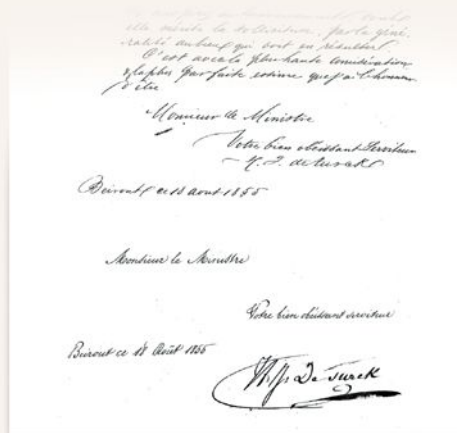 elle mérite la sollicitude, par la géné-
ralité du bien qui doit en résulter.
C'est avec la plus haute considération
& la plus parfaite estime que j'ai l'honneur
d'être
Monsieur le Ministre
Votre bien obéissant Serviteur
de Turck
Beirout ce 18 aout 1855
Monsieur le Ministre
Votre bien obéissant serviteur
Beirout ce 18 Août 1855
De Turck